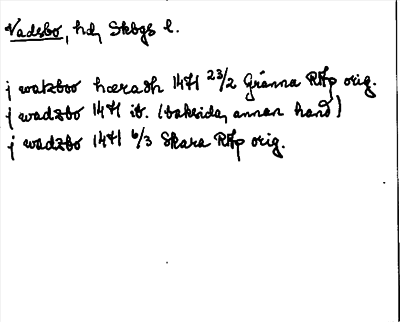 Vadsbo, hd, Skbgs l.
j watzboo hæradh 1471 23/2 Gränna RAp orig.
j wadzbo 1471 ib. (baksida, annan hand)
j wadzbo 1471 6/3 Skara RAp orig.